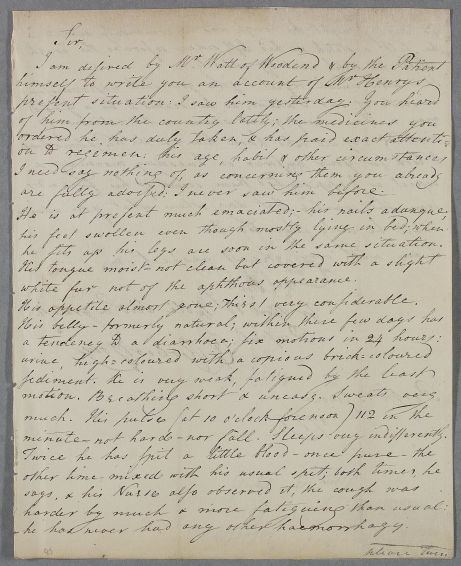 Sir,
I am desired by Mr. Wall of Woodend & by the Patient
himself to write you an account of Mr Henry's
present situation. I saw him yesterday. You heard
of him from the country lately; the medicines you
ordered he has duly taken, & has paid exact attenti-
on to regimen; his age, habit & other circumstances
I need say nothing of, as concerning them you already
are fully advised. I never saw him before.
He is at present much emaciated;- his nails adunque,
his feet swollen even though mostly lying in bed; when
he sits up his legs are soon in the same situation.
His tongue moist - not clean but covered with a slight
white fur not of the aphthous appearance.
His appetite almost gone; thirst very considerable.
His belly - formerly natural; within these few days has
a tendency to a diarrhoea; six motions in 24 hours;
urine, high-coloured with a copious brick-coloured
sediment. He is very weak, fatigued by the least
motion. Breathing short & uneasy. Sweats very
much. His pulse (at 10 o'clock forenoon) 112 in the
minute - not hard - nor full. Sleeps very indifferently.
Twice he has spit a little blood - once pure - the
other time mixed with his usual spit; both times he
says, & his Nurse also observed it, the cough was
harder by much & more fatiguing than usual:
he has never had any other haemorrhagy.